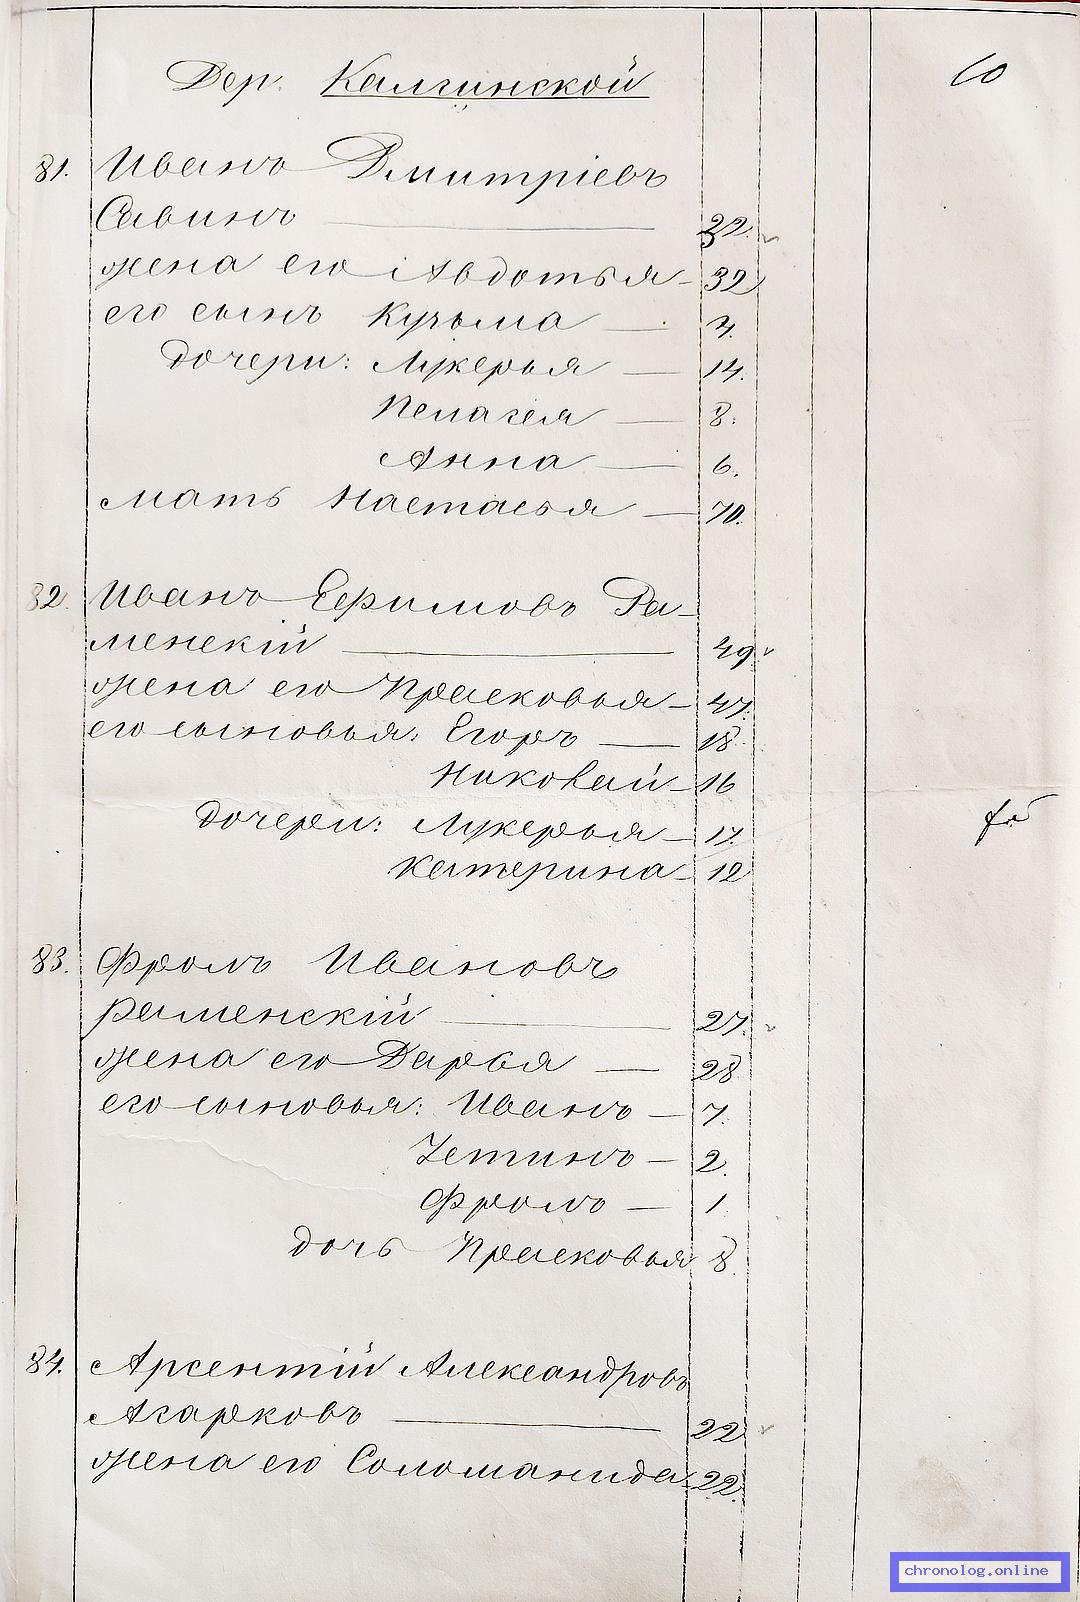 Дер. Калгинской
81. Иванъ Дмитріевъ
Савинъ — 32.
жена его Авдотья - 32
его сынъ Кузьма — 4.
дочери: Лукерья — 14.
Пелагея — 8.
Анна — 6.
мать Настасья — 70.
82. Иванъ Ефимовъ Ра-
менскій — 49
жена его Прасковья - 47.
его сыновья: Егоръ — 18
Николай - 16
дочери: Лукерья - 17.
Катерина - 12
83. Фролъ Ивановъ
Раменскій — 27.
жена его Дарья — 28
его сыновья: Иванъ — 7.
Устинъ — 2.
Фролъ — 1
дочь Прасковья 8.
84. Арсентій Александровъ
Агарковъ — 22
жена его Соломанида - 22.
chronolog.online